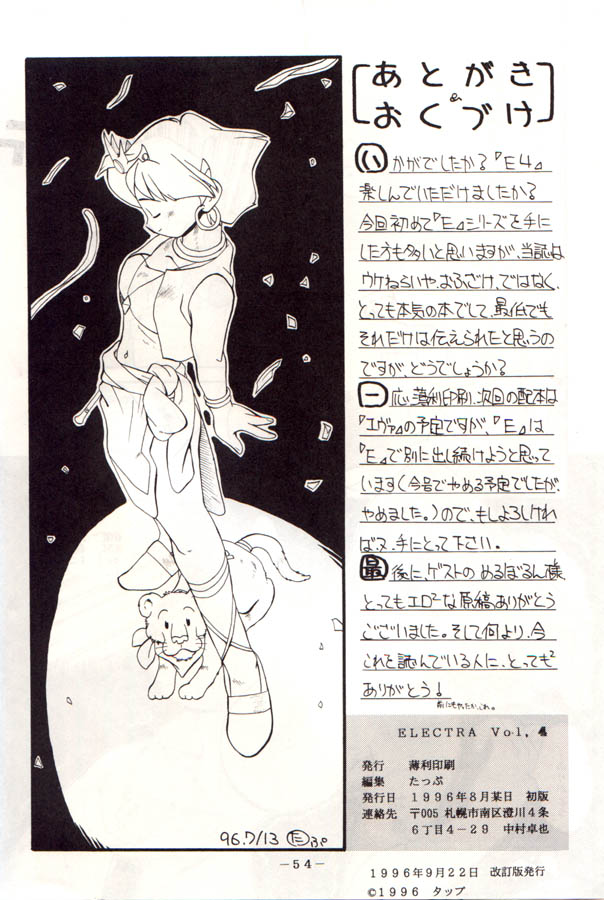 あとがき
&
おくづけ
いかがでしたか？『E4』
楽しんでいただけましたか？
今回初めて『E』シリーズを手に
した方も多いと思いますが、当誌は
ウケねらいや、おふざけ、ではなく、
とっても本気の本でして、最低でも
それだけは伝えられたと思うの
ですが、どうでしょうか？
一応、薄利印刷、次回の配本は
『エヴァ』の予定ですが、『E』は
『E』で別に出し続けようと思って
います（今号でやめる予定でしたが、
やめました。）ので、もしよろしけれ
ば又、手にとって下さい。
最後に、ゲストの めるぼるん様、
とってもエロ²な原稿、ありがとう
ございました。そして何より、今
これを読んでいる人に、とっても²
ありがとう！
前にもやったか、これ。
ELECTRA Vol. 4
発行 薄利印刷
編集 たっぷ
発行日 1996年8月某日 初版
連絡先 〒005 札幌市南区澄川4条
6丁目4－29 中村卓也
1996年9月22日 改訂版発行
©1996 タップ
96.7/13 たっぷ
－54－